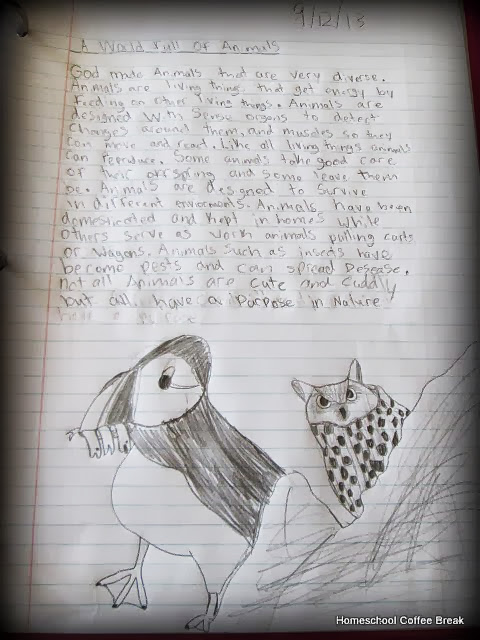 9/12/13
A World Full Of Animals
God made Animals that are very diverse.
Animals are living things that get energy by
feeding on other living things. Animals are
designed with sense organs to detect
changes around them, and muscles so they
can move and react. Like all living things animals
can reproduce. Some animals take good care
of their offspring and some leave them
be. Animals are designed to survive
in different enviorments. Animals have been
domesticated and kept in homes while
others serve as work animals pulling carts
or wagons. Animals such as insects have
become pests and can spread Desease.
not all Animals are cute and cuddly
but all have a Parpose in Nature
Homeschool Coffee Break